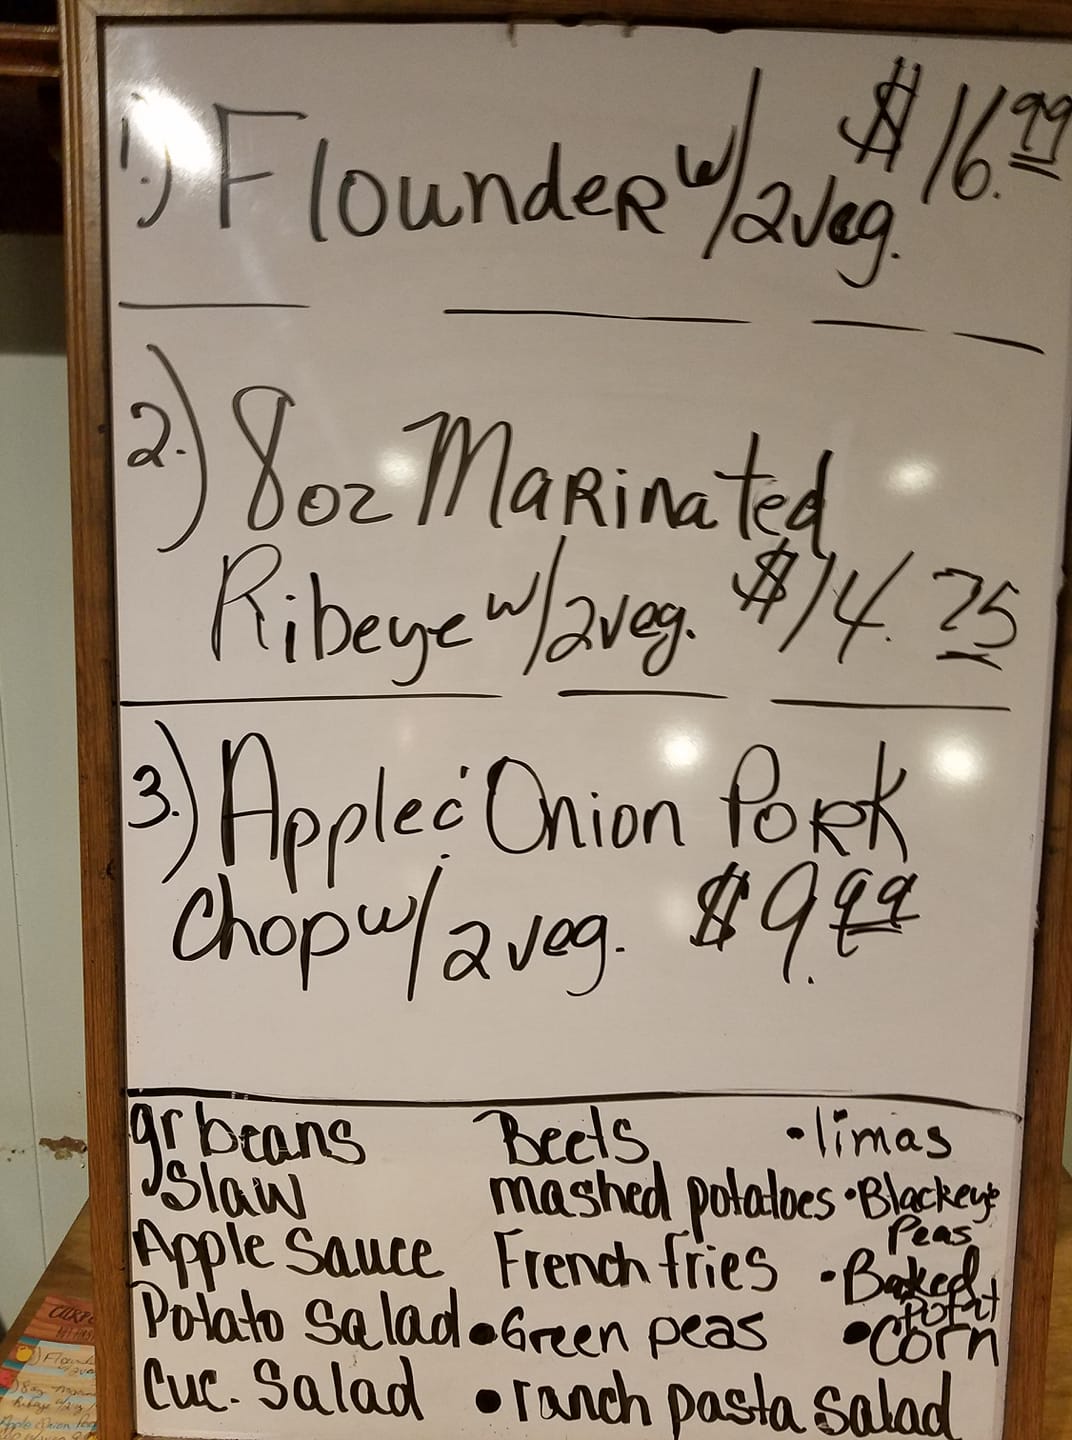 1.) Flounder w/2veg. $16.99
2.) 8oz Marinated
Ribeye w/2veg. $14.75
3.) Apple & Onion Pork
Chop w/2veg. $9.99
gr beans Beets •limas
Slaw mashed potatoes •Blackeye
Peas
Apple Sauce French fries •Baked
Potat
Potato Salad •Green peas •Corn
Cuc. Salad •ranch pasta Salad
8oz